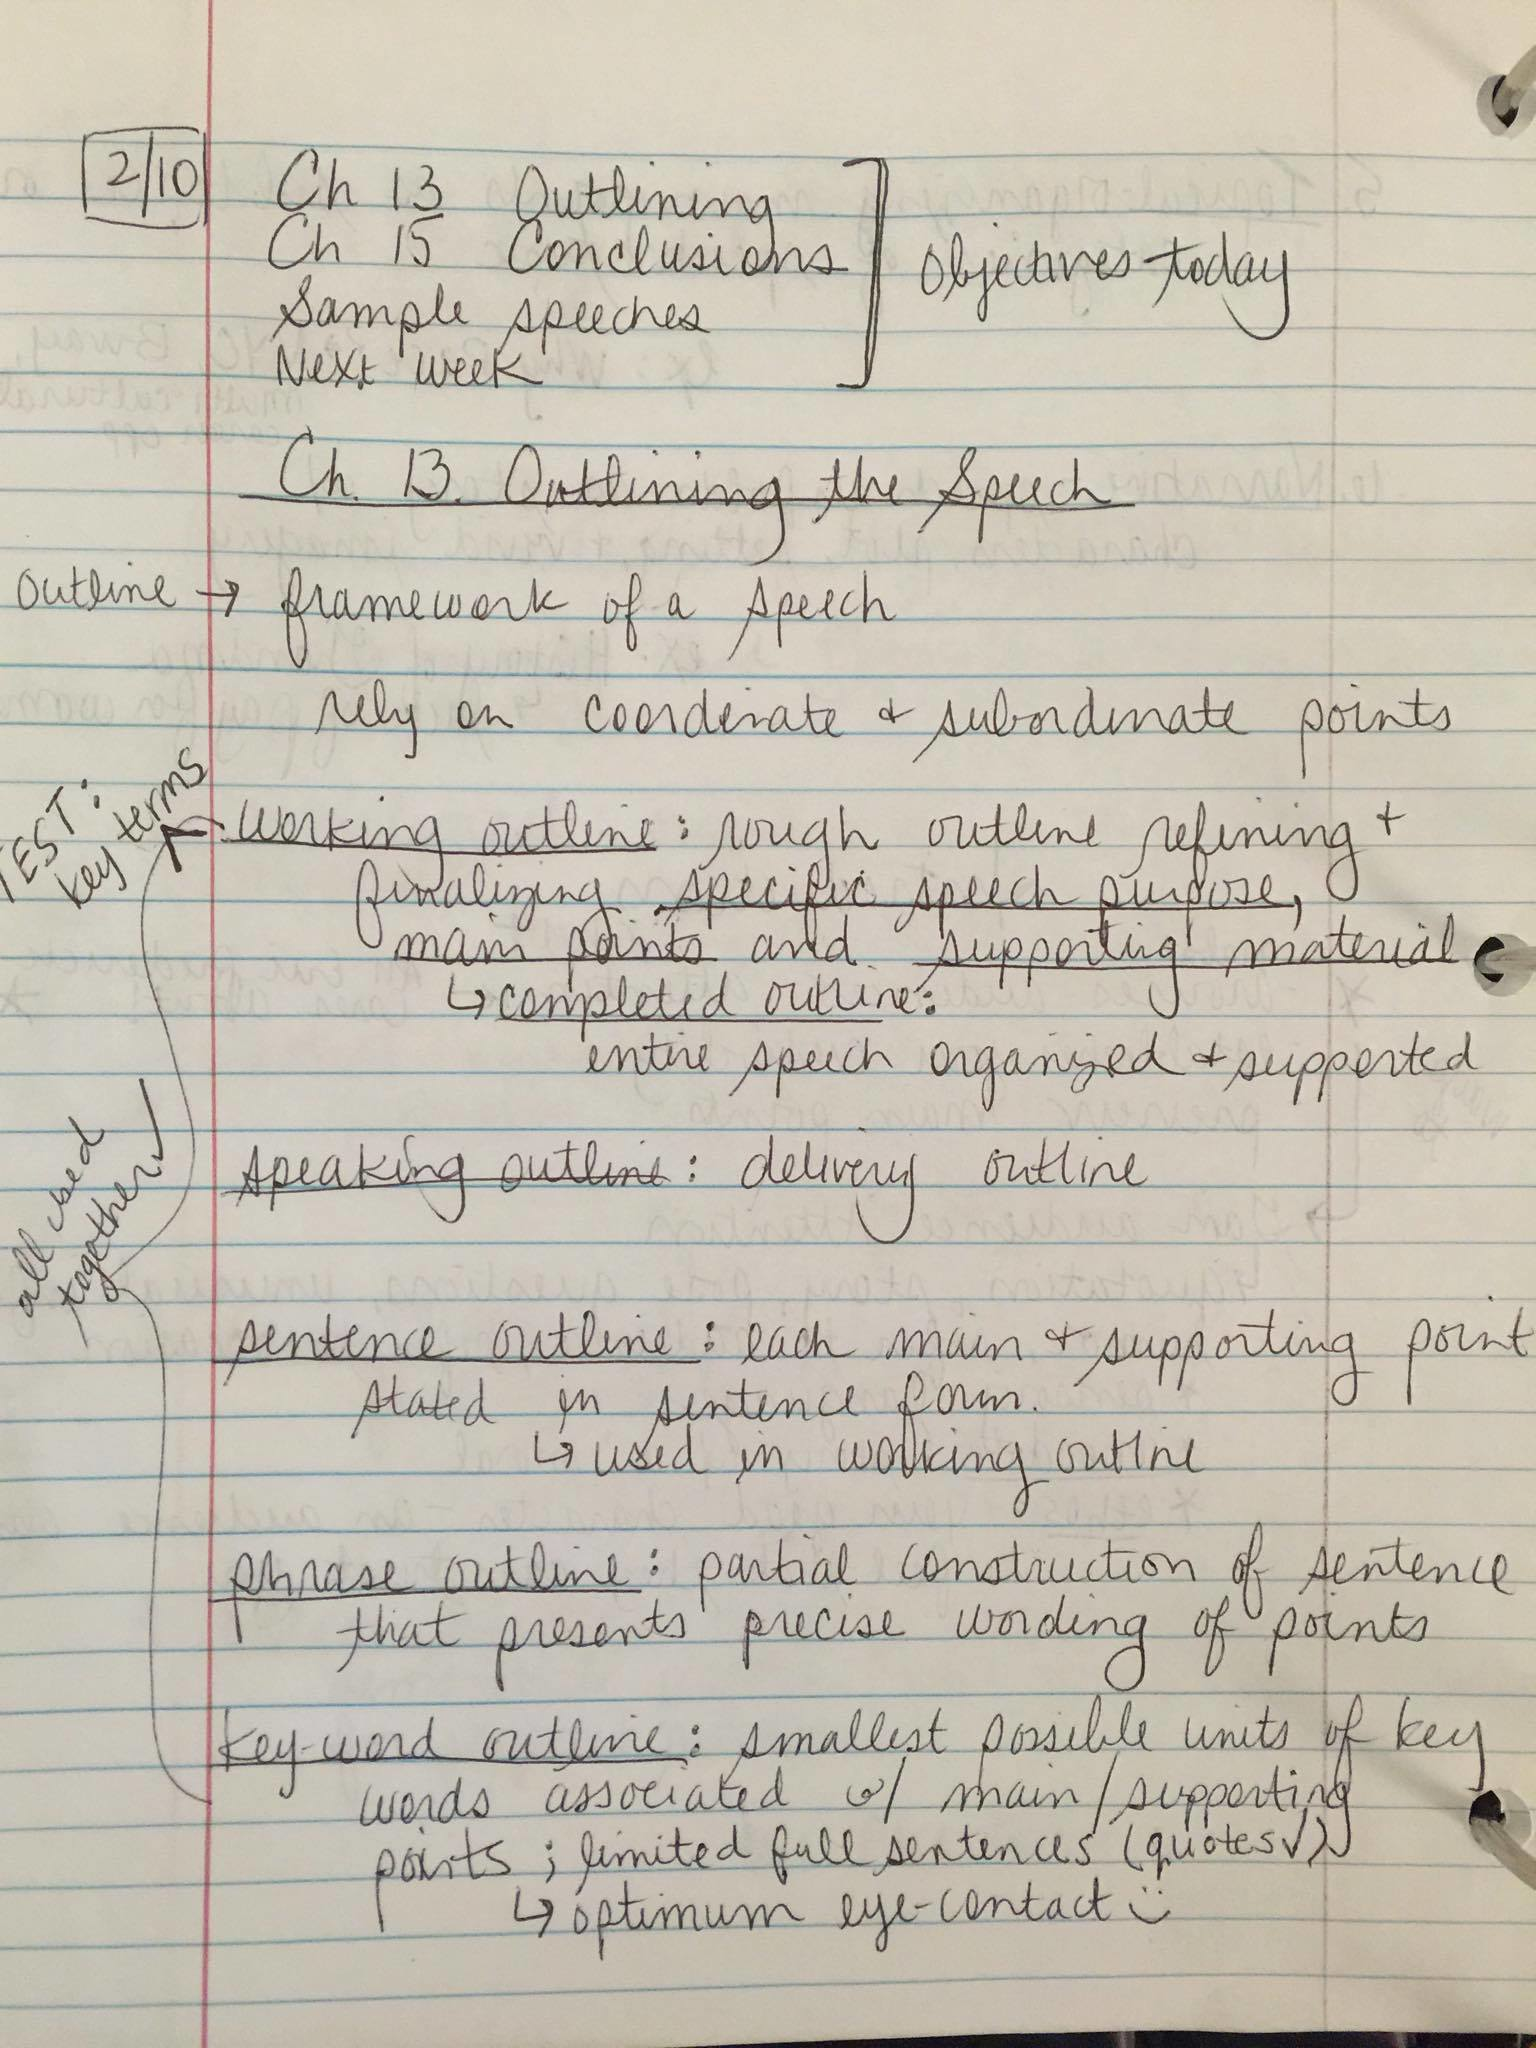 2/10
Ch 13 Outlining
Ch 15 Conclusions
Sample speeches
Next week
Objectives today
Ch. 13. Outlining the Speech
Outline → framework of a speech
rely on coordinate + subordinate points
TEST:
key terms
working outline: rough outline refining +
finalizing specific speech purpose,
main points and supporting material
↳ completed outline:
entire speech organized + supported
all used
together ✓
speaking outline: delivery outline
sentence outline: each main + supporting point
stated in sentence form.
↳ used in working outline
phrase outline: partial construction of sentence
that presents precise wording of points
key-word outline: smallest possible units of key
words associated w/ main/supporting
points; limited full sentences (quotes ✓)
↳ optimum eye-contact :)